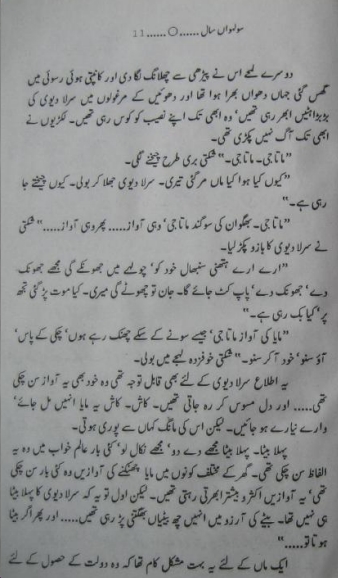 سولہواں سال ......O...... 11
دوسرے لمحے اس نے پیڑھی سے چھلانگ لگا دی اور کانپتی ہوئی رسوئی میں
گھس گئی جہاں دھواں بھرا ہوا تھا اور دھوئیں کے مرغولوں میں سرلا دیوی کی
بڑبڑاہٹیں ابھر رہی تھیں' وہ ابھی تک اپنے نصیب کو کوس رہی تھیں۔ لکڑیوں نے
ابھی تک آگ نہیں پکڑی تھی۔
”ماتا جی۔ ماتا جی۔“ شکتی بری طرح چیخنے لگی۔
”کیوں کیا ہوا کیا ماں مر گئی تیری۔ سرلا دیوی جھلا کر بولی۔ کیوں چیختے جا
رہی ہے۔“
”ماتا جی۔ بھگوان کی سوگند ماتا جی' وہی آواز..... پھر وہی آواز.....“ شکتی
نے سرلا دیوی کا بازو پکڑ لیا۔
”ارے ارے ہتھنی سنبھال خود کو' چولہے میں جھونکے گی مجھے جھونک
دے' جھونک دے' پاپ کٹ جائے گا۔ جان تو چھوٹے گی میری۔ کیا موت پڑ گئی تجھ
پر' کیا بک رہی ہے۔“
”مایا کی آواز ماتا جی' جیسے سونے کے سکے چھنک رہے ہوں' چکی کے پاس'
آؤ سنو' خود آ کر سنو۔“ شکتی خوفزدہ لہجے میں بولی۔
یہ اطلاع سرلا دیوی کے لئے بھی قابل توجہ تھی وہ خود بھی یہ آواز سن چکی
تھی..... اور دل مسوس کر رہ جاتی تھیں۔ کاش۔ کاش یہ مایا انہیں مل جائے'
وارے نیارے ہو جائیں۔ لیکن اس کی مانگ کہاں سے پوری ہوتی۔
پہلا بیٹا۔ پہلا بیٹا مجھے دے دو' مجھے نکال لو' کئی بار عالم خواب میں وہ یہ
الفاظ سن چکی تھی۔ گھر کے مختلف کونوں میں مایا چھنکنے کی آوازیں وہ کئی بار سن چکی
تھی' یہ آوازیں اکثر و بیشتر ابھرتی رہتی تھیں۔ لیکن اول تو یہ کہ سرلا دیوی کا پہلا بیٹا
ہی نہیں تھا۔ بیٹے کی آرزو میں انہیں چھ بیٹیاں بھگتنی پڑ رہی تھیں..... اور پھر اگر بیٹا
ہوتا تو.....“
ایک ماں کے لئے یہ بہت مشکل کام تھا کہ وہ دولت کے حصول کے لئے